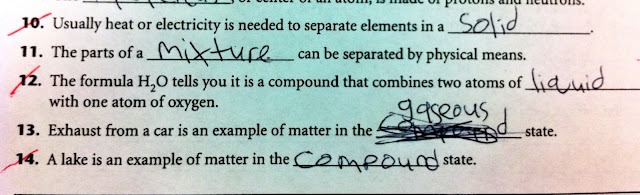 or center of an atom, is made of protons and neutrons.
10. Usually heat or electricity is needed to separate elements in a solid
11. The parts of a mixture can be separated by physical means.
12. The formula H₂O tells you it is a compound that combines two atoms of liquid
with one atom of oxygen.
gaseous
13. Exhaust from a car is an example of matter in the compound state.
14. A lake is an example of matter in the compound state.